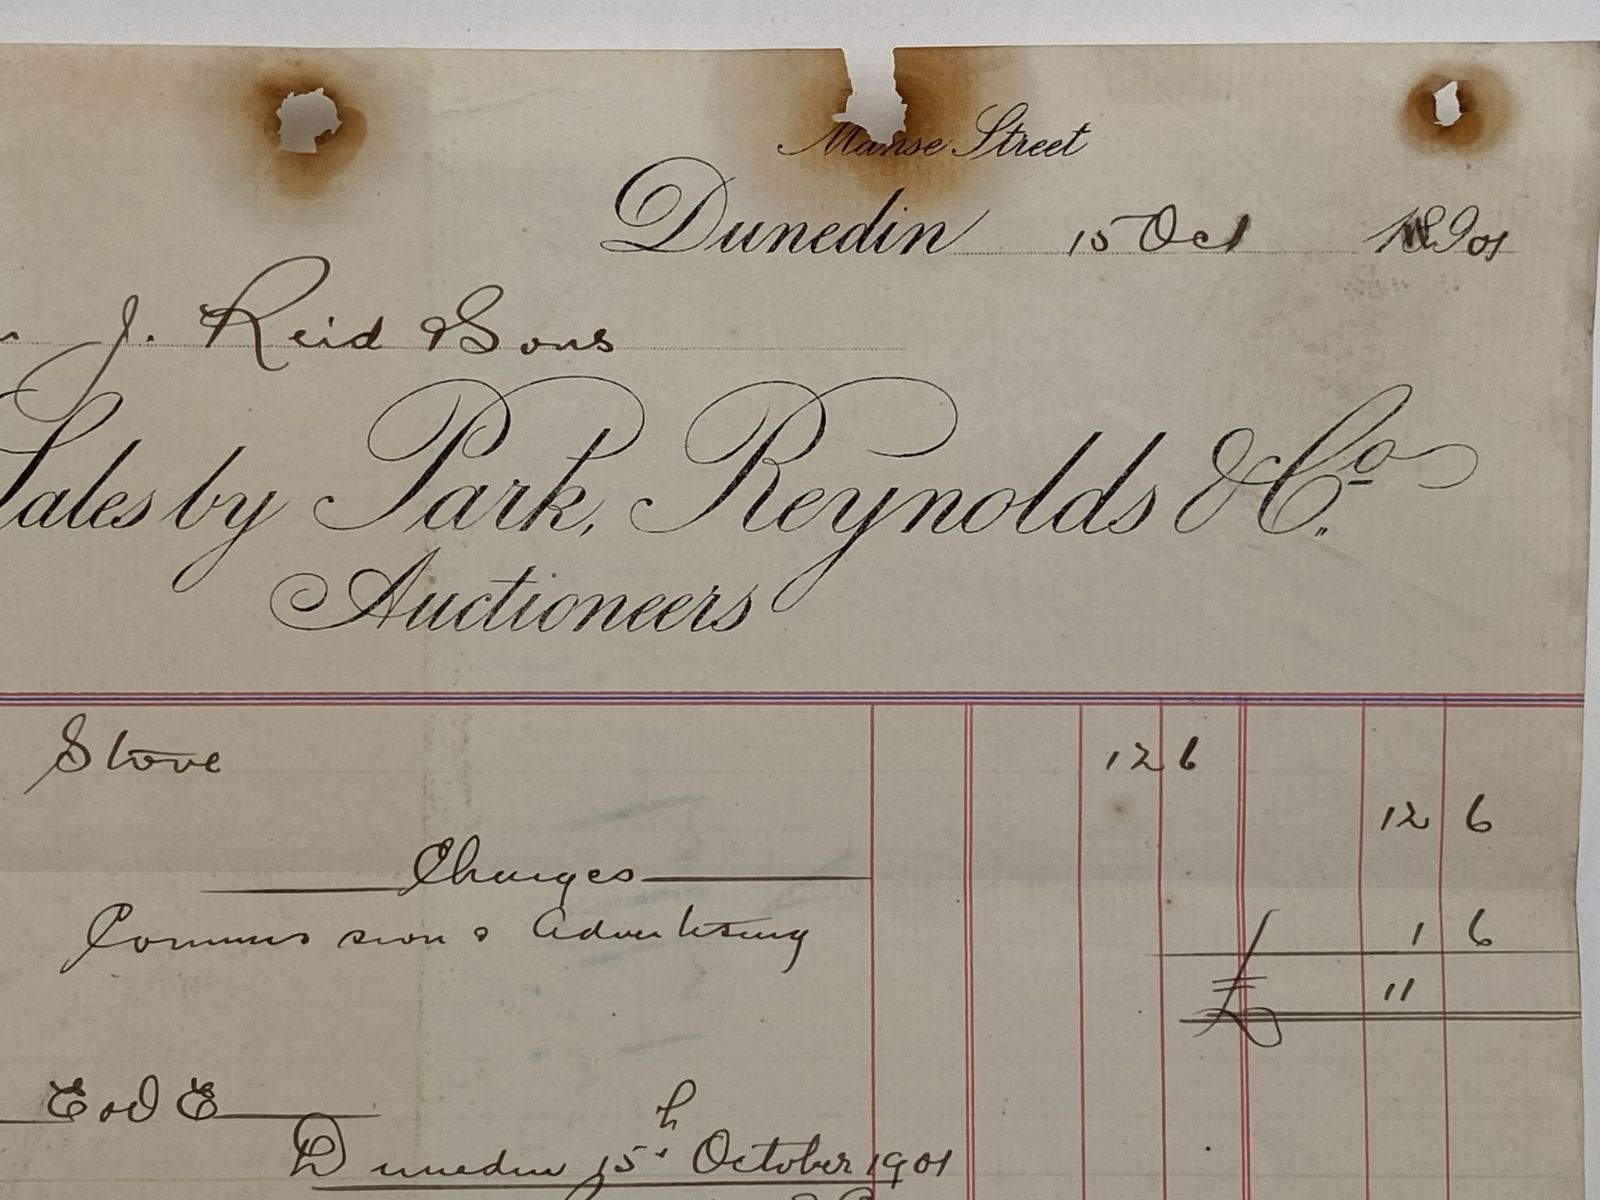 Manse Street
Dunedin 15 Oct 1901
J. Reid & Sons
Sales by Park, Reynolds & Co.
Auctioneers
Stove 12 6
12 6
Charges
Commission & Advertising 1 6
£ 11
E & O E
Dunedin 15th October 1901